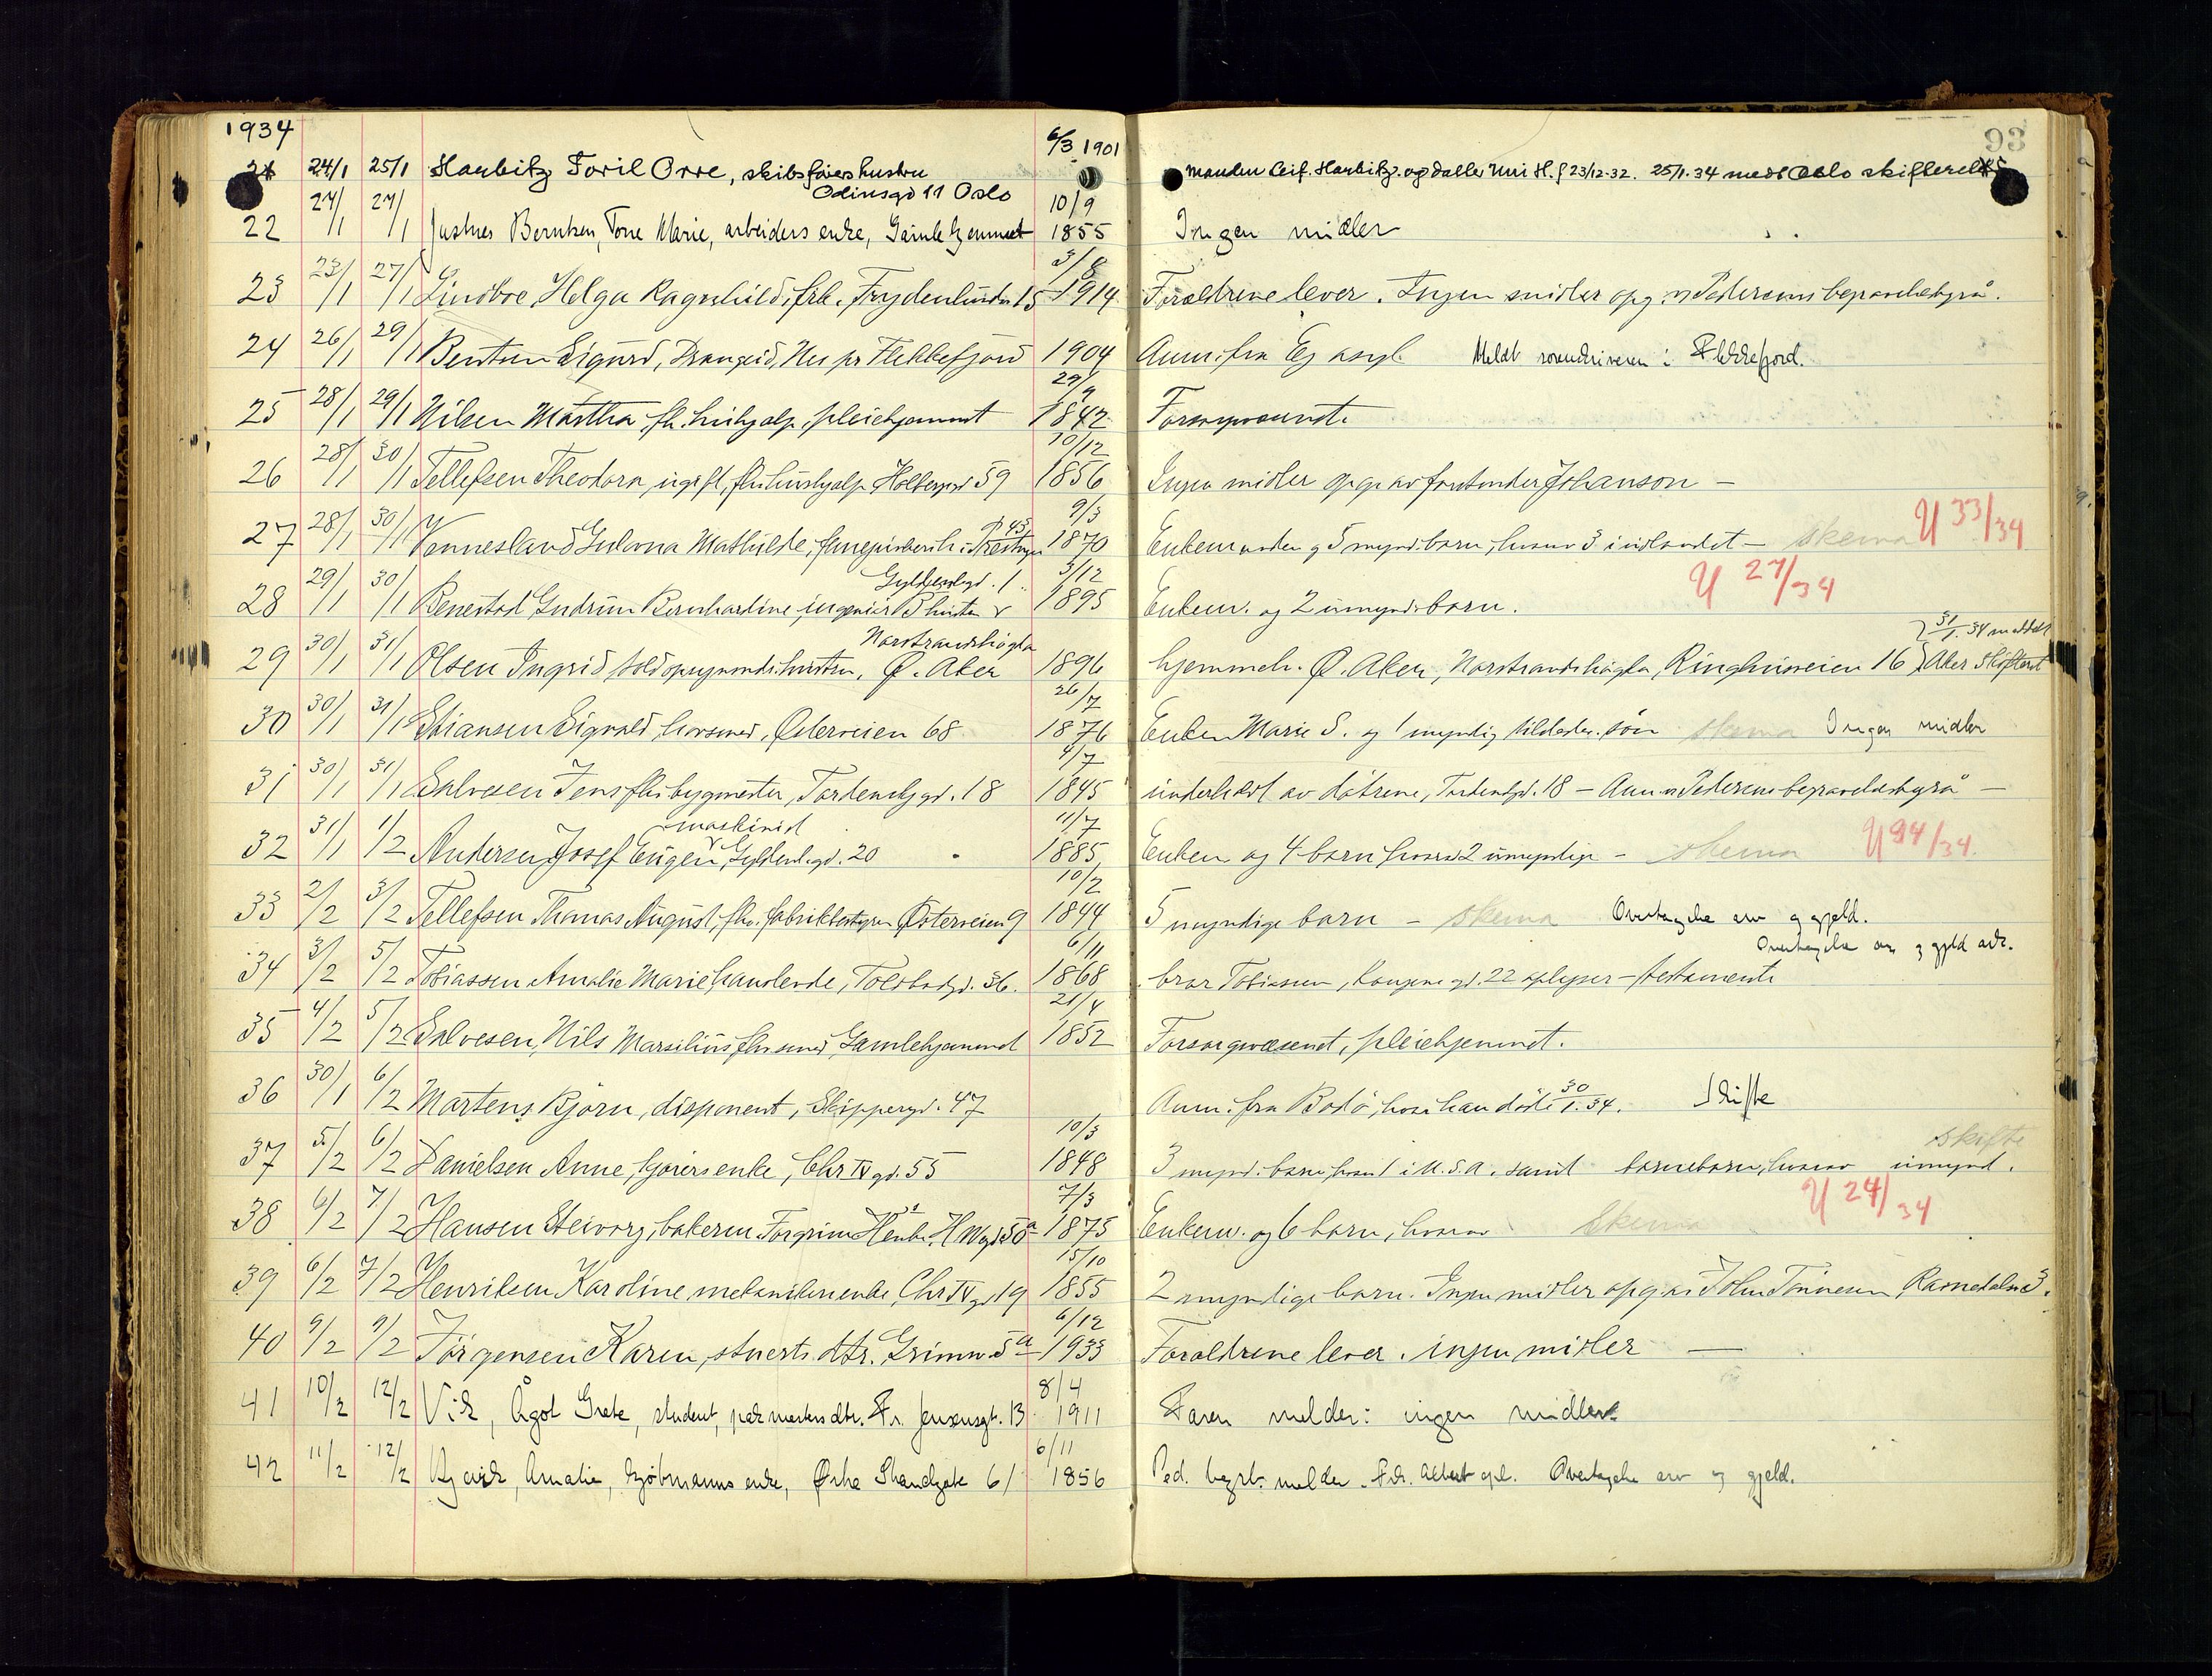 1934
93
21 24/1 25/1 Harbitz Toril Orre, skibsførers hustru 6/3 1901 Manden Leif Harbitz og datter Uni H. f 23/12-32. 25/1-34 medt Oslo skifterett
Odinsgd 11 Oslo
22 24/1 27/1 Justnes Berntsen, Tone Marie, arbeiders enke, Gamlehjemmet 10/9 1855 Ingen midler
23 23/1 27/1 Lindboe Helga Ragnhild, frk. Frydenlundsv. 15 3/8 1914 Forældrene lever. Ingen midler opg. Pedersens begravelsbyrå.
24 26/1 29/1 Bentsen Sigurd, Drangeid, Nes pr Flekkefjord 1904 Anm. fra Eg asyl Meldt sorenskriveren i Flekkefjord.
25 28/1 29/1 Nilsen Martha, fh. hushjælp, pleiehjemmet 29/9 1842 Forsorgsvæsenet.
26 28/1 30/1 Tellefsen Theodora, ugift, fh. hushjælp Holbergsgd 59 10/12 1856 Ingen midler opg. av forstander Johanson —
27 28/1 30/1 Vennesland Gulovna Mathilde, 9/3 1870 Enkem. og 5 mynd. barn, hvorav 3 i utlandet — skema U 33/34
28 29/1 30/1 Benestad Gudrun Bernhardine, ingeniør hustru Gyldenløvesgd. 1 3/12 1895 Enkem. og 2 umynd. barn. U 27/34
29 30/1 31/1 Olsen Ingrid, toldopsynsmds. hustru, Ø. Aker Norstrandshøgda 1896 hjemmeh. Ø. Aker, Norstrandshøgda, Ringhusveien 16 31/1.34 meddelt Aker Skifterett
30 30/1 31/1 Stiansen Sigvald, hovsmed, Østerveien 68 26/7 1876 Enken Marie S. og 1 myndig søn skema Ingen midler
31 30/1 31/1 Salvesen Jens, fh. bygmester, Tordenskj.gd. 18 4/7 1845 underholdt av døtrene, Tordenskj.gd. 18 — Anm. Pedersens begravelsbyrå —
32 31/1 1/2 Andersen Josef Eugen, maskinist Gyldenl.gd. 20 11/7 1885 Enken og 4 barn hvorav 2 umyndige — skema U 94/34
33 2/2 3/2 Tellefsen Thomas August, fhv. fabrikkbestyrer Østerveien 9 10/2 1844 5 myndige barn — skema Overtagelse arv og gjeld.
34 3/2 5/2 Tobiassen Amalie Marie, handlende, Tolbodgd. 36. 6/11 1868 bror Tobiassen, Kongensgd. 22 oplyser — testamente Overtagelse arv og gjeld
35 4/2 5/2 Salvesen, Nils Marselius, fh. smed, Gamlehjemmet 21/4 1852 Forsorgsvæsenet, pleiehjemmet.
36 30/1 6/2 Martens Bjørn, disponent, Skippergd. 47 Anm. fra Bodø, hvor han døde 30/1.34. Skifte
37 5/2 6/2 Danielsen Anne, enke, Chr IV gd. 55 10/3 1848 3 mynd. barn, hvorav 1 i U.S.A. samt barnebarn, hvorav umynd. skifte
38 6/2 7/2 Hansen Steivorg, bakerm. Torgrim H's enke, H. W gd 50a 7/3 1875 Enkem. og 6 barn, hvorav skema U 24/34
39 6/2 7/2 Henriksen Karoline, mekanikerenke, Chr IV gd 19 15/10 1855 2 myndige barn. Ingen midler opg. av John Tønnesen, Ravnedalsv. 3.
40 9/2 9/2 Jørgensen Karen, stuerts dtr. Grimsv. 5a 6/12 1933 Forældrene lever. ingen midler —
41 10/2 12/2 Vik, Ågot Grete, student, dtr. Fr. Jensensgt. 13 8/4 1911 Faren melder: ingen midler
42 11/2 12/2 Kjevik, Amalie, kjøbmanns enke, Østre Strandgate 61 6/11 1856 Ped. begrb. melder. Albert opl. Overtagelse arv og gjeld.